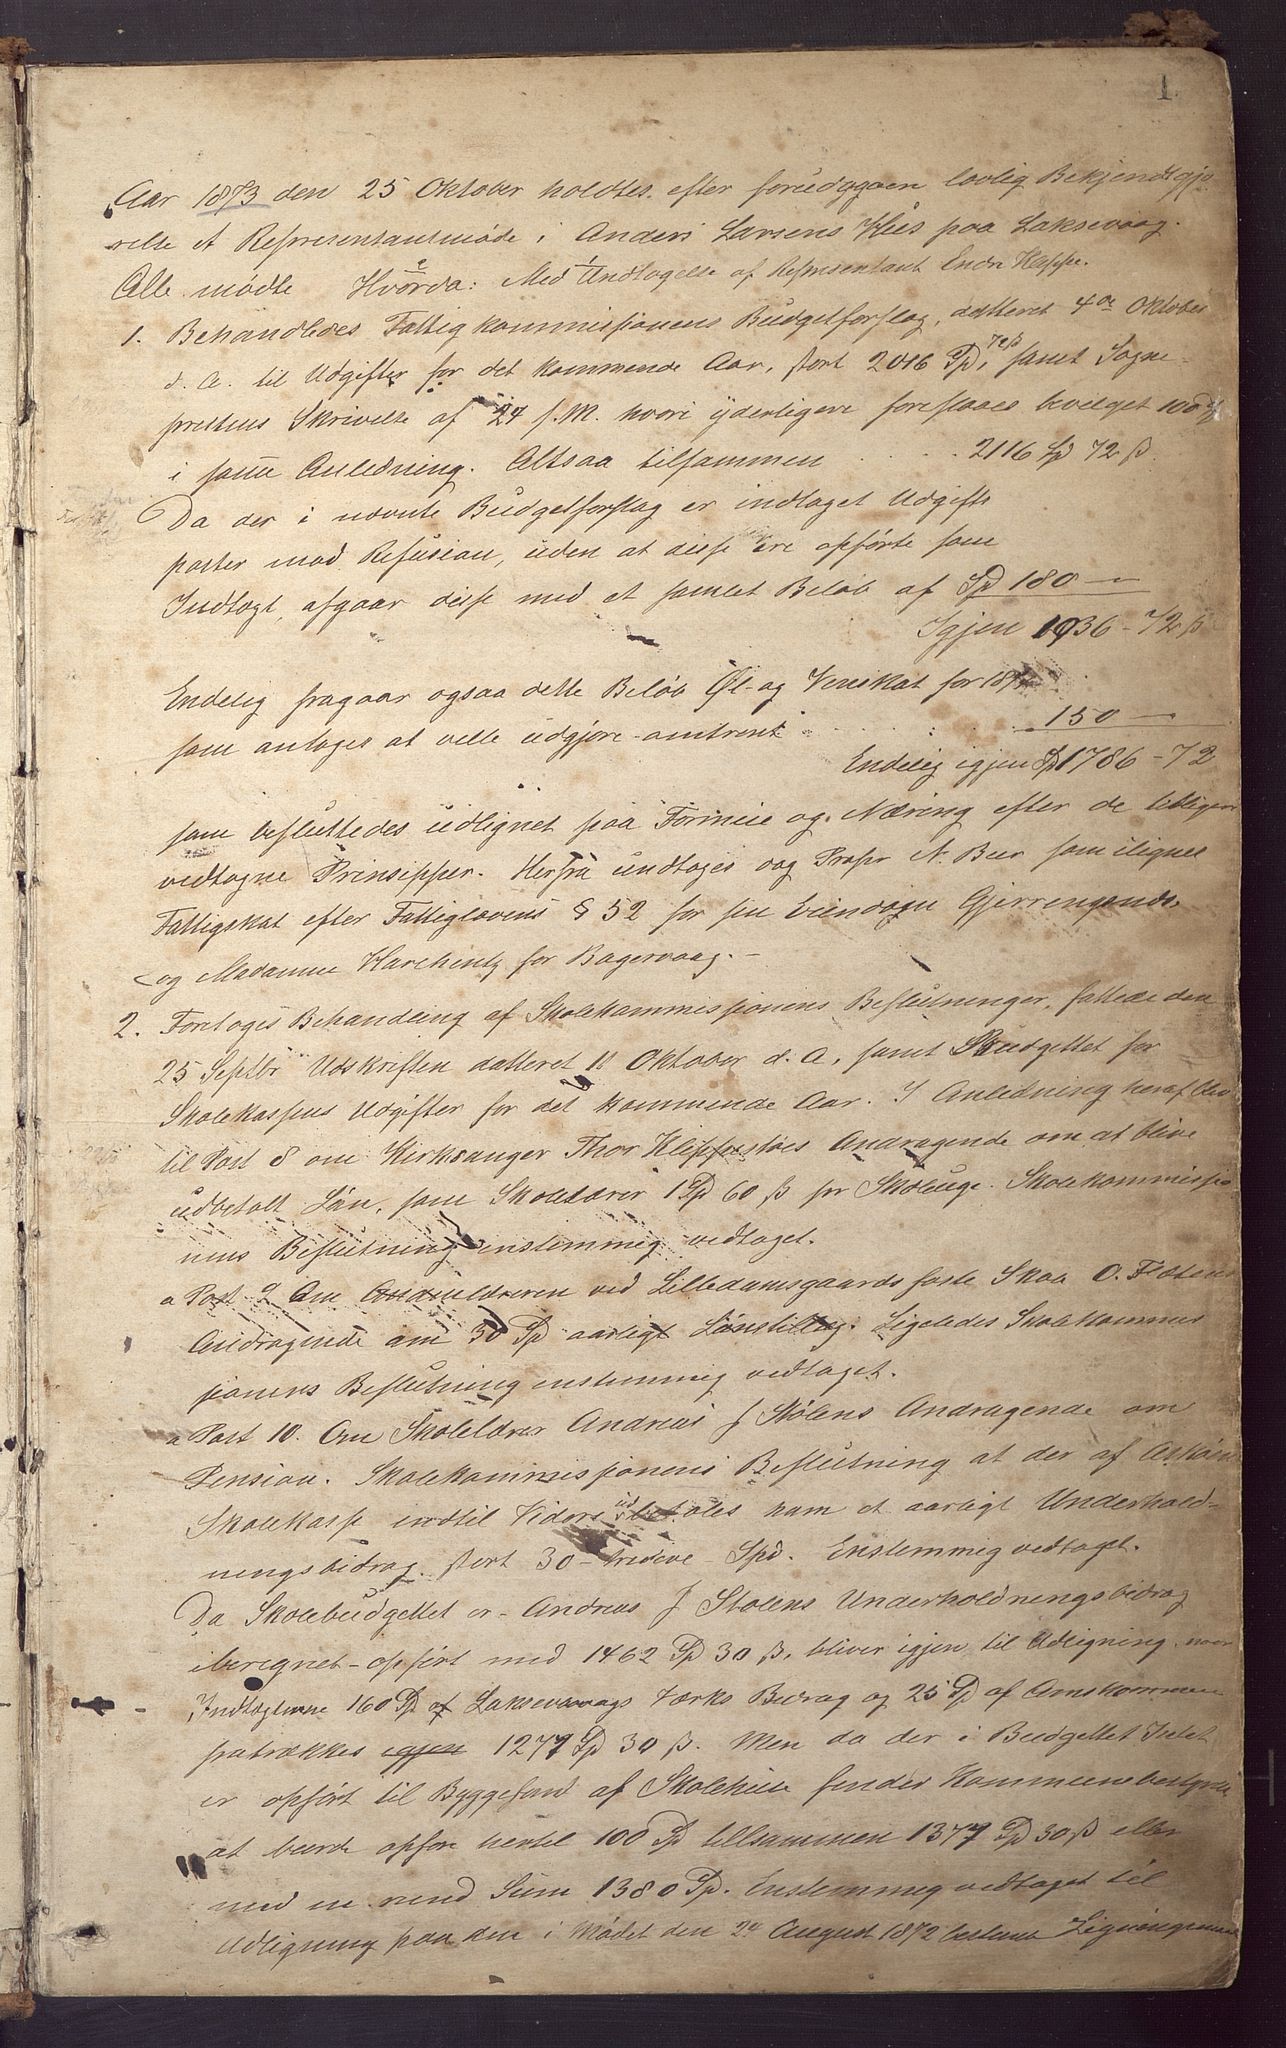 1
Aar 1873 den 25 Oktober holdtes efter forudggaaen lovlig Bekjendtgjø
relse et Representantmøde i Anders Larsens Hus paa Laksevaag.
Alle mødte Hvorda: Med Undtagelse af Representant Endre Happe.
1. Behandledes Fattigkommissionens Budgetforslag, datteret 4de Oktober
d. A. til Udgifter for det kommende Aar, stort 2016 Spd, 72 ß samt Sogne-
prestens Skrivelse af 24 f. M. hvori yderligere foreslaaes bevelget 100 Spd
i samme Anledning. Altsaa tilsammen . . . . 2116 Spd 72 ß.
Da der i nævnte Budgetforslag er indtaget Udgifts
poster mod Refusion, uden at disse ere opførte som
Indtægt, afgaar disse med et samlet Beløb af Spd 180 —
Igjen 1936 - 72 ß
Endelig fragaar ogsaa dette Beløb Øl- og Vinskat for
som antages at ville udgjøre omtrent . . . . . 150 —
Endelig igjen Spd 1786 - 72
som besluttedes udlignet paa Formue og Næring efter de tidligere
vedtagne Prinsipper. Herfra undtages dog Propr N. Beer som ilignes
Fattigskat efter Fattiglovens § 52 for sin Eiendom
og Madamme for
2. Foretoges Behandling af Skolekommissionens Beslutninger, fattede den
25 Septbr Udskriften datteret 11 Oktober d. A, samt Budgettet for
Skolekassens Udgifter for det kommende Aar. I Anledning heraf blev
til Post 8 om Kirksanger Thor Andragende om at blive
udbetalt Løn, som Skolelærer 1 Spd 60 ß pr Skoleuge. Skolekommissio
nens Beslutning enstemmig vedtaget.
a Post 9 Om ved Lilledamsgaards faste Skole O.
Andragende om 30 Spd aarligt Lønstillæg. Ligeledes Skolekommis
sionens Beslutning enstemmig vedtaget.
a Post 10. Om Skolelærer Andreas J Stølens Andragende om
Pension. Skolekommissionens Beslutning at der af Askøens
Skolekasse indtil Videre udbetales ham et aarligt Underhold-
ningsbidrag stort 30 - tredeve - Spd. Enstemmig vedtaget.
Da Skolebudgettet er - Andreas J Stølens Underholdningsbidrag
iberegnet - opført med 1462 Spd 30 ß, bliver igjen til Udligning naar
Indtægterne 160 Spd af Laksevaags Værks Bidrag og 25 Spd af Amtskommunen
fratrækkes igjen 1277 Spd 30 ß. Men da der i Budgettet Intet
er opført til Byggefond af Skolehuse fandt Kommunebestyrelsen
at burde opføre hertil 100 Spd tilsammen 1377 Spd 30 ß eller
med en rund Sum 1380 Spd. Enstemmig vedtaget til
Udligning paa den i Mødet den 24 August 1872 bestemte